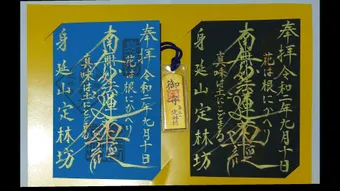 奉拝 令和二年九月十日
花は根にかへり
南無妙法蓮華経
真味は土にとどまる
身延山定林坊
御守
奉拝 令和二年九月十日
花は根にかへり
南無妙法蓮華経
真味は土にとどまる
身延山定林坊